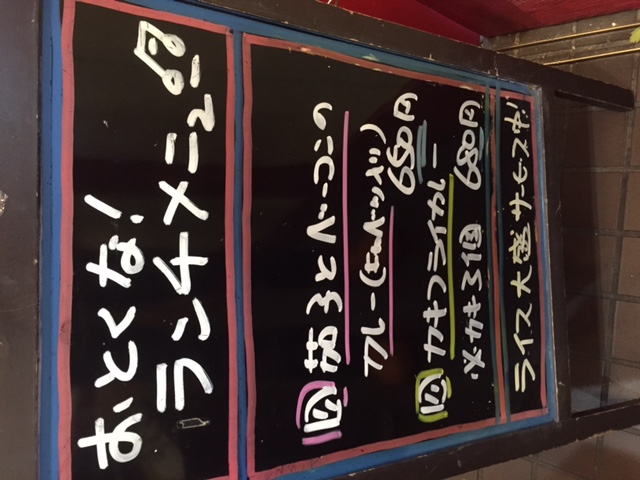 おとくな!
ランチメニュー
茄子とベーコンの
カレー(キャベツ入り)
650円
カキフライカレー
※カキ3個 680円
ライス大盛サービス中!